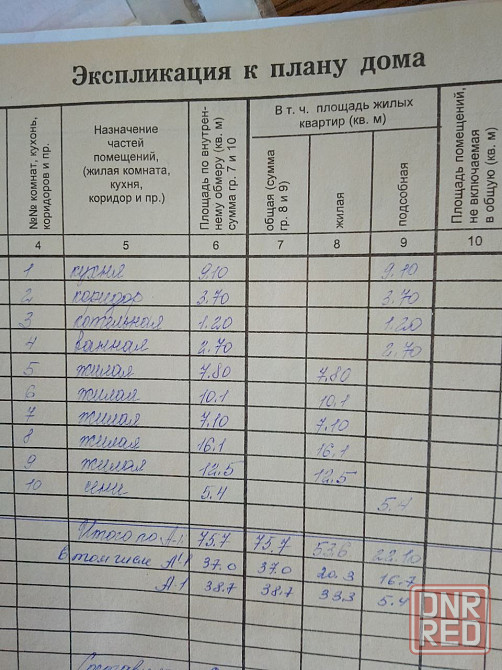 Экспликация к плану дома
№№ комнат, кухонь, коридоров и пр.
Назначение частей помещений, (жилая комната, кухня, коридор и пр.)
Площадь по внутреннему обмеру (кв. м) сумма гр. 7 и 10
В т. ч. площадь жилых квартир (кв. м)
общая (сумма гр. 8 и 9)
жилая
подсобная
Площадь помещений, не включаемая в общую (кв. м)
4 5 6 7 8 9 10
1 кухня 9.10 9.10
2 коридор 3.70 3.70
3 котельная 1.20 1.20
4 ванная 2.70 2.70
5 жилая 7.80 7.80
6 жилая 10.1 10.1
7 жилая 7.10 7.10
8 жилая 16.1 16.1
9 жилая 12.5 12.5
10 сени 5.4 5.4
Итого по А-1 75.7 75.7 53.6 22.10
в том числе А'1 37.0 37.0 20.3 16.7
А-1 38.7 38.7 33.3 5.4
DNR
RED